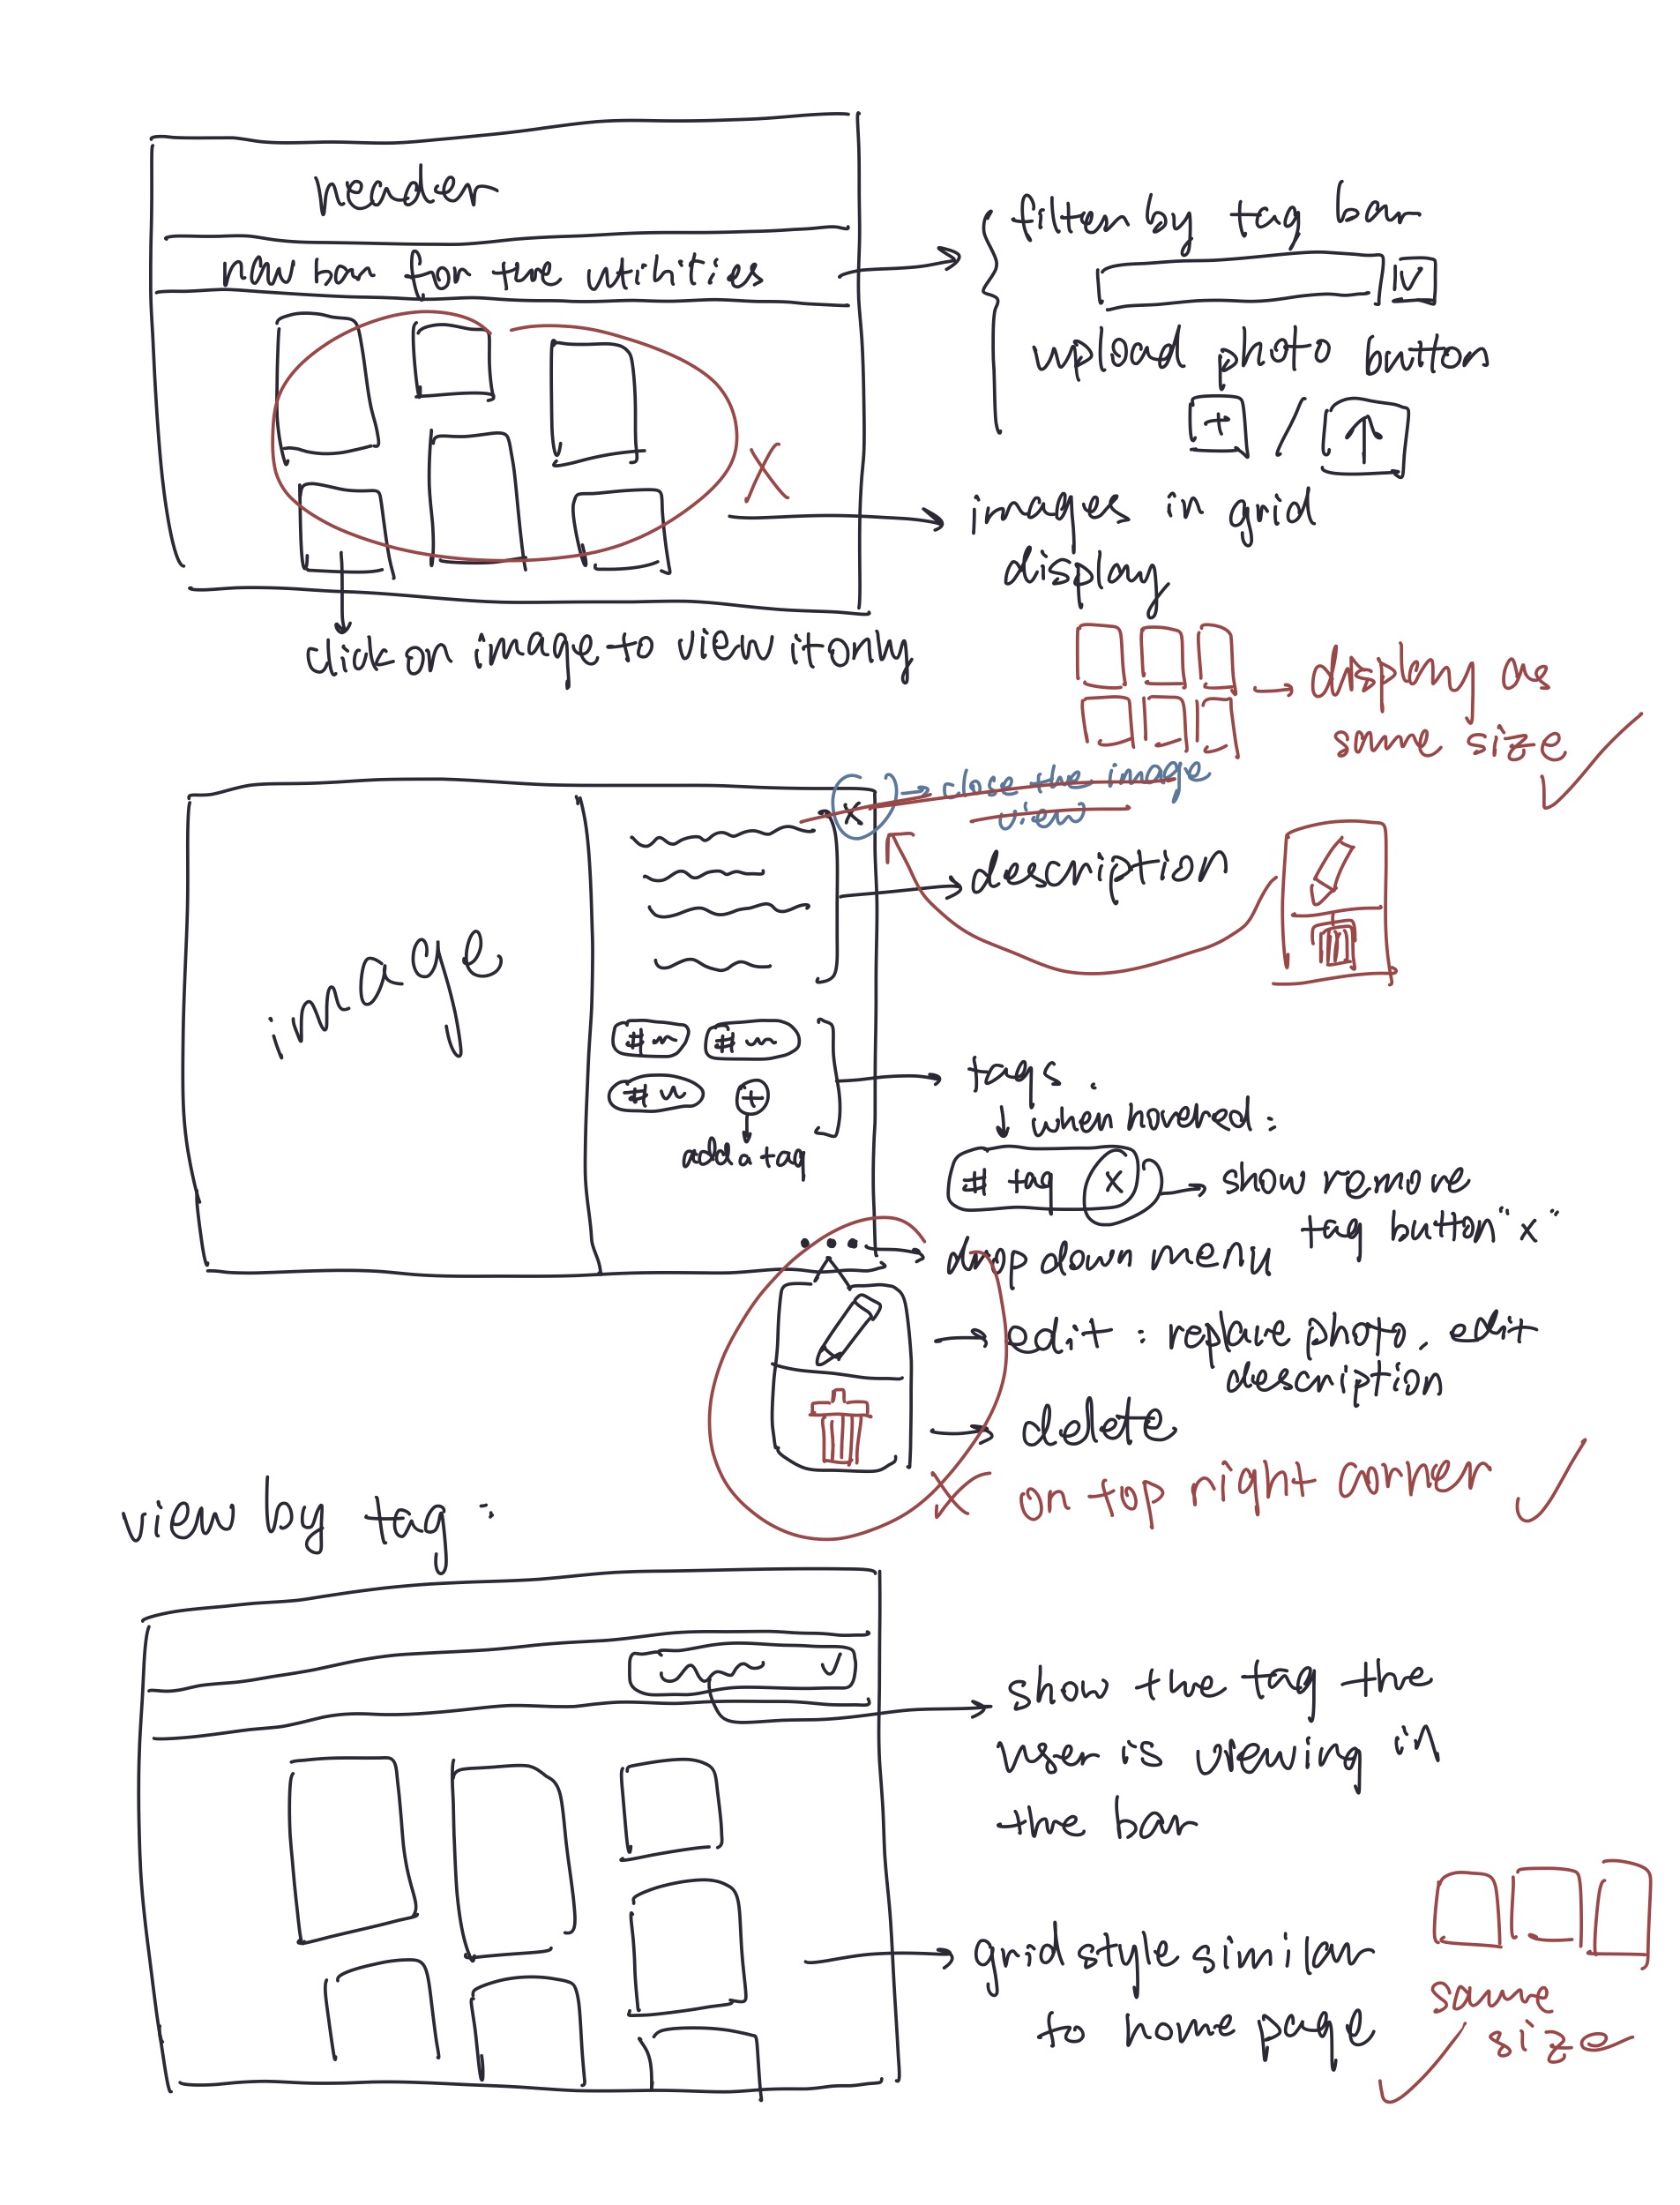 header
nav bar for the utilities
filter by tag bar
upload photo button
+ / ↑
X
images in grid
display
click on image to view it only
display as
same size
x
close the image
view
description
image
# #
# +
add a tag
tags.
when hovered:
# tag x
show remove
tag button "x"
drop down menu
edit: replace photo, edit
description
delete
X on top right corner
view by tag:
show the tag the
user is viewing in
the bar
grid style similar
to home page
same
size